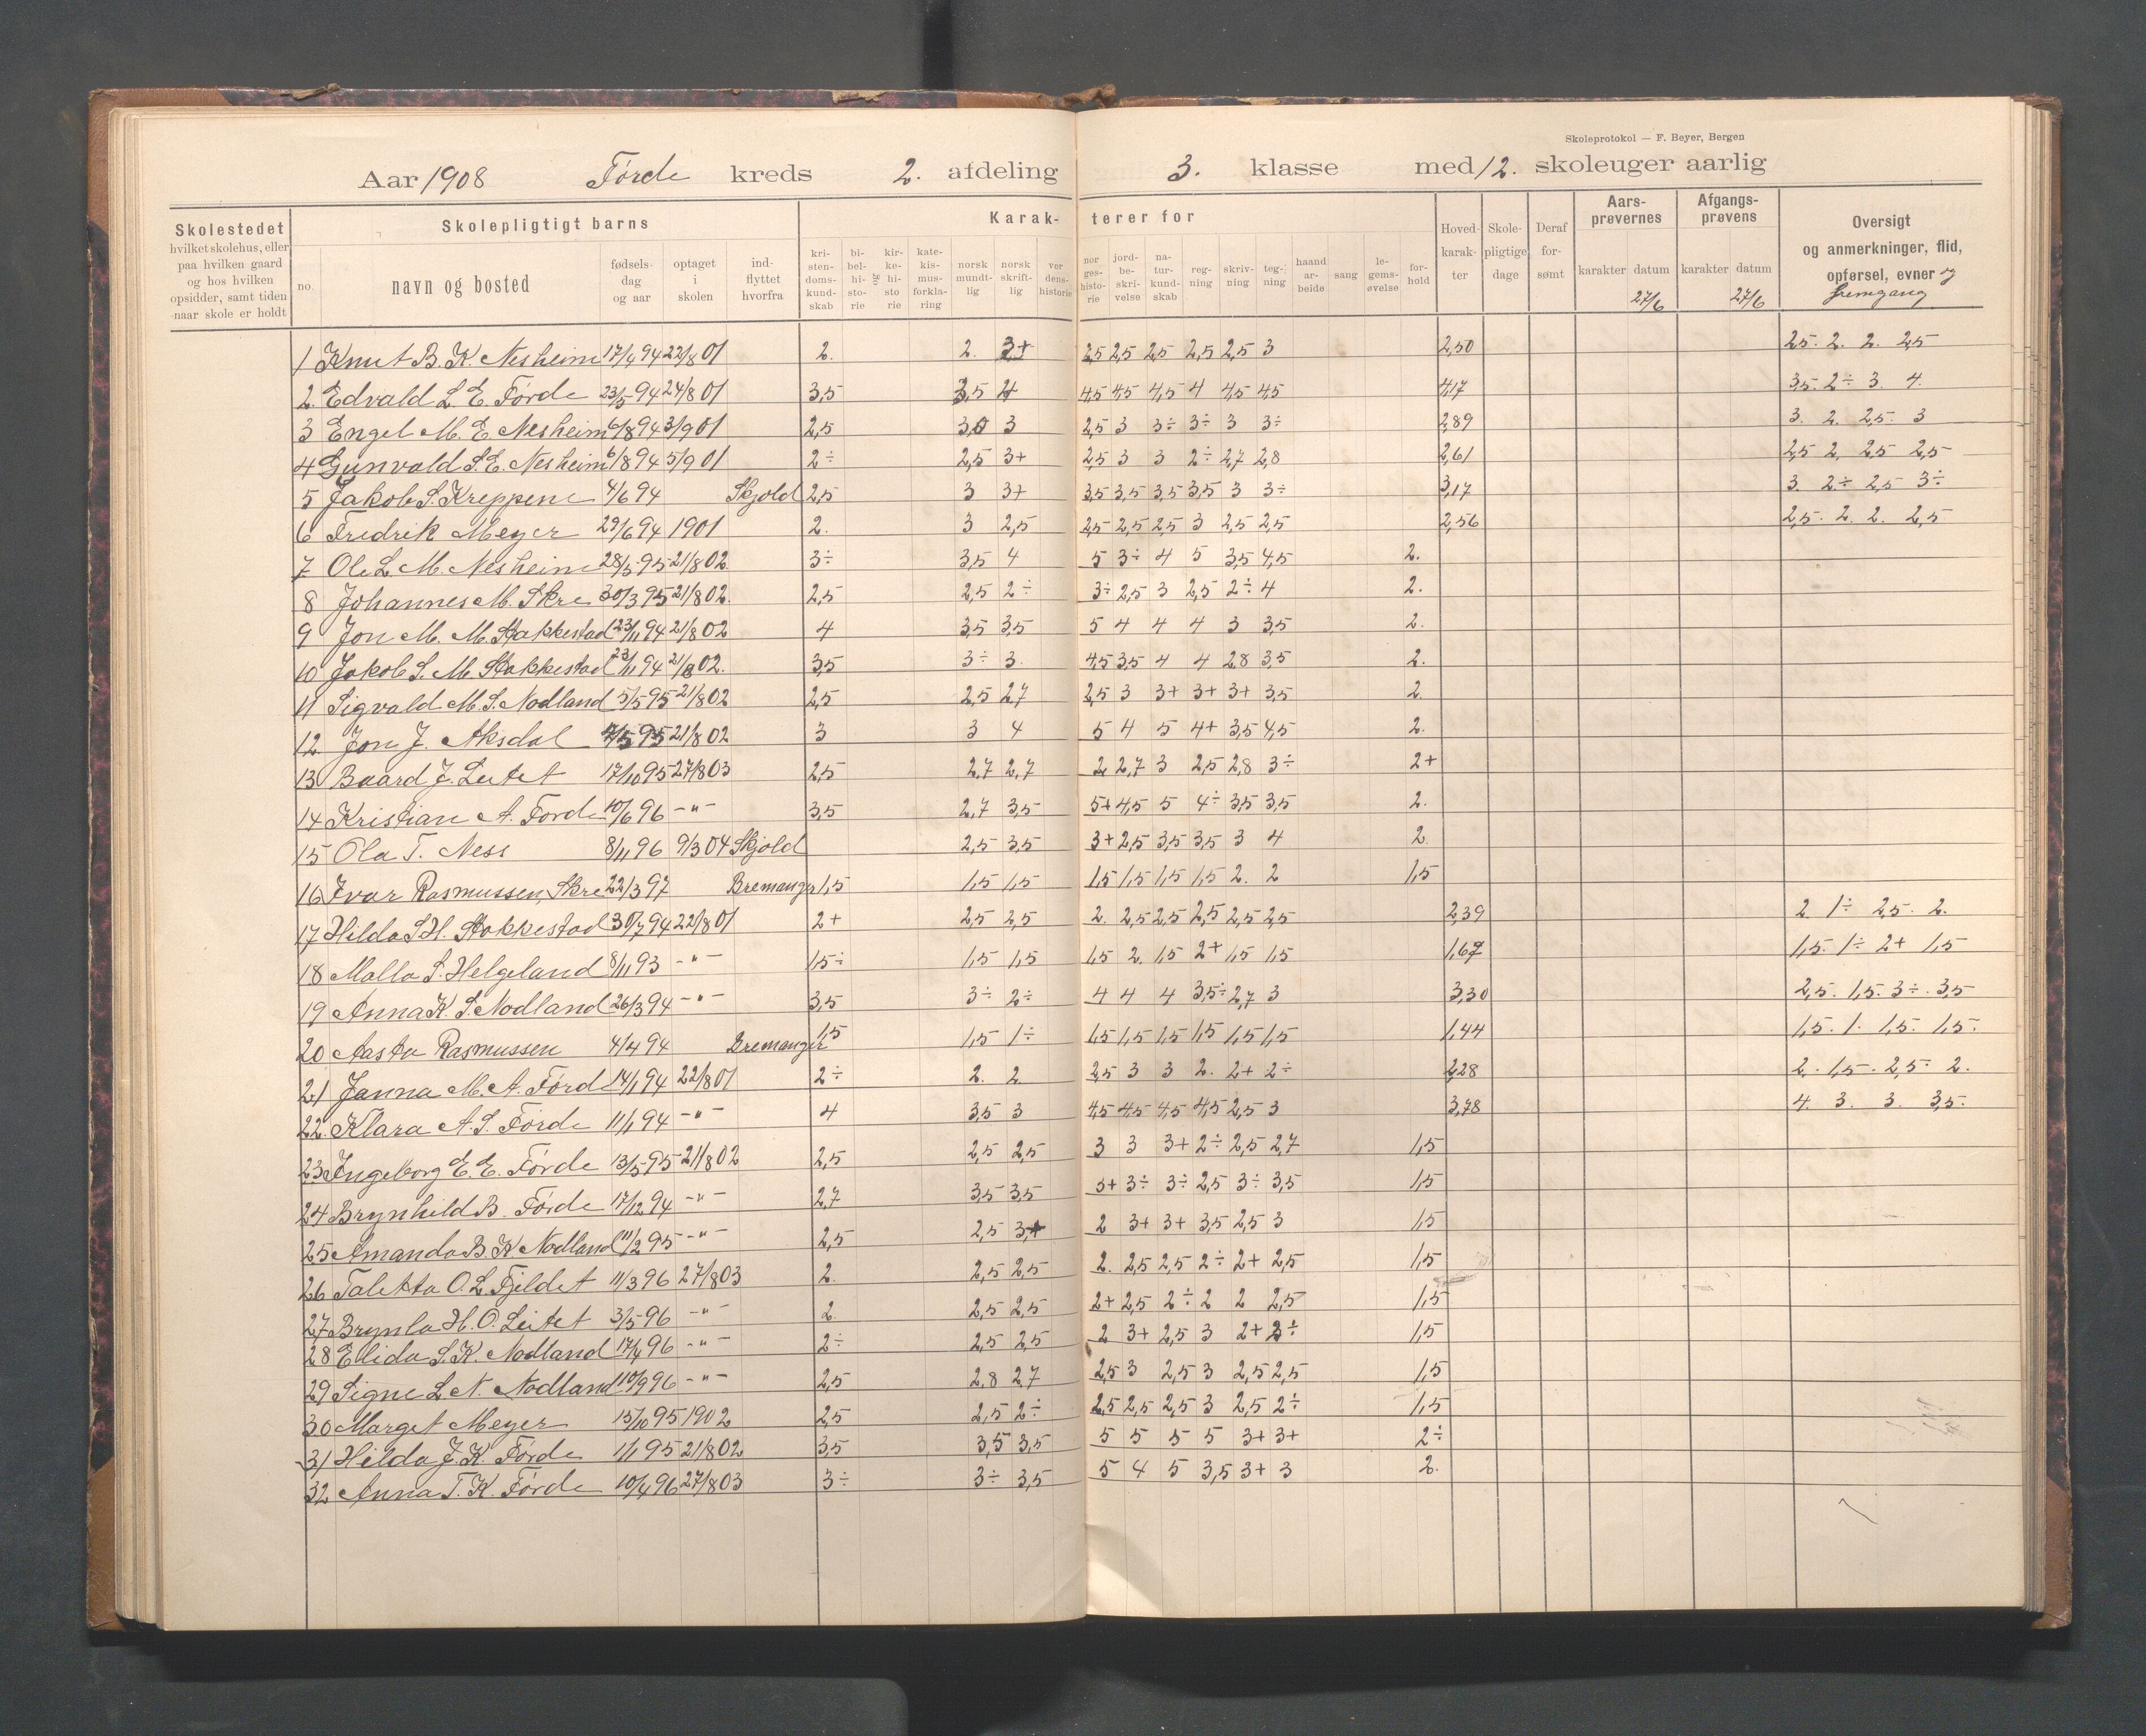 Skoleprotokol — F. Beyer, Bergen
Aar 1908 Førde kreds 2. afdeling 3. klasse med 12. skoleuger aarlig
Skolestedet hvilket skolehus, eller paa hvilken gaard og hos hvilken opsidder, samt tiden naar skole er holdt
Skolepligtigt barns
no. navn og bosted fødsels- dag og aar optaget i skolen ind- flyttet hvorfra
Karak- terer for
kri- sten- doms- kund- skab bi- bel- hi- sto- rie og kir- ke- hi- sto rie kate- kis- mus- forkla- ring norsk mundt- lig norsk skrift- lig ver dens- historie nor ges- histo- rie jord- be- skri- velse na- tur- kund- skab reg- ning skriv- ning teg- ning haand ar- beide sang le- gems- øvelse for- hold
Hoved- karak- ter Skole- pligtige dage Deraf for- sømt
Aars- prøvernes karakter datum 27/6
Afgangs- prøvens karakter datum 27/6
Oversigt og anmerkninger, flid, opførsel, evner og fremgang
1 Knut B. K. Nesheim 17/4 94 22/8 01 2. 2. 3+ 2,5 2,5 2,5 2,5 2,5 3 2,50 2,5. 2. 2. 2,5
2. Edvald L. E. Førde 23/5 94 24/8 01 3,5 3,5 4 4,5 4,5 4,5 4 4,5 4,5 4,17 3,5. 2÷ 3. 4.
3 Engel M. E. Nesheim 6/8 94 3/9 01 2,5 3,0 3 2,5 3 3÷ 3÷ 3 3÷ 2,89 3. 2. 2,5. 3
4 Gunvald S. E. Nesheim 6/8 94 5/9 01 2÷ 2,5 3+ 2,5 3 3 2÷ 2,7 2,8 2,61 2,5 2, 2,5 2,5
5 Jakob S. Kreppene 4/6 94 Skjold 2,5 3 3+ 3,5 3,5 3,5 3,5 3 3÷ 3,17 3. 2÷ 2,5 3÷
6 Fredrik Meyer 29/6 94 1901 2. 3 2,5 2,5 2,5 2,5 3 2,5 2,5 2,56 2,5. 2. 2. 2,5
7 Ole L. M. Nesheim 28/5 95 21/8 02. 3÷ 3,5 4 5 3÷ 4 5 3,5 4,5 2.
8 Johannes M. Skre 30/3 95 21/8 02. 2,5 2,5 2÷ 3÷ 2,5 3 2,5 2÷ 4 2.
9 Jon M. M. Stakkestad 23/11 94 21/8 02 4 3,5 3,5 5 4 4 4 3 3,5 2.
10 Jakob S. M. Stakkestad 23/11 94 21/8 02. 3,5 3÷ 3. 4,5 3,5 4 4 2,8 3,5 2.
11 Sigvald M. S. Nodland 5/5 95 21/8 02 2,5 2,5 2,7 2,5 3 3+ 3+ 3+ 3,5 2.
12 Jon J. Aksdal 95 21/8 02 3 3 4 5 4 5 4+ 3,5 4,5 2.
13 Baard J. Leitet 17/10 95 27/8 03 2,5 2,7 2,7 2, 2,7 3 2,5 2,8 3÷ 2+
14 Kristian A. Førde 10/6 96 -"- 3,5 2,7 3,5 5+ 4,5 5 4÷ 3,5 3,5 2.
15 Ola T. Ness 8/11 96 9/3 04 Skjold 2,5 3,5 3+ 2,5 3,5 3,5 3 4 2.
16 Ivar Rasmussen, Skre 22/3 97 Bremanger 1,5 1,5 1,5 1,5 1,5 1,5 1,5 2. 2 1,5
17 Hilda S. H. Stakkestad 30/7 94 22/8 01 2+ 2,5 2,5 2. 2,5 2,5 2,5 2,5 2,5 2,39 2 1÷ 2,5. 2.
18 Malla S. Helgeland 8/11 93 -"- 1,5÷ 1,5 1,5 1,5 2. 1,5 2+ 1,5 1,5 1,67 1,5. 1÷ 2+ 1,5
19 Anna K. S. Nodland 26/3 94 -"- 3,5 3÷ 2÷ 4 4 4 3,5÷ 2,7 3 3,30 2,5. 1,5. 3÷. 3,5
20 Aasta Rasmussen 4/4 94 Bremanger 1,5 1,5 1÷ 1,5 1,5 1,5 1,5 1,5 1,5 1,44 1,5. 1. 1,5. 1,5.
21 Janna M. A. Førde 14/1 94 22/8 01 2÷ 2. 2 2,5 3 3 2. 2+ 2÷ 2,28 2. 1,5. 2,5÷ 2.
22. Klara A. S. Førde 11/1 94 -"- 4 3,5 3 4,5 4,5 4,5 4,5 2,5 3 3,78 4. 3. 3. 3,5.
23 Ingeborg E. E. Førde 13/5 95 21/8 02 2,5 2,5 2,5 3 3 3+ 2÷ 2,5 2,7 1,5
24 Brynhild B. Førde 17/12 94 -"- 2,7 3,5 3,5 3+ 3÷ 3÷ 2,5 3÷ 3,5 1,5
25 Amanda B. K. Nodland 11/2 95 -"- 2,5 2,5 3+ 2 3+ 3+ 3,5 2,5 3 1,5
26 Taletta O. L. Fjeldet 11/3 96 27/8 03 2. 2,5 2,5 2. 2,5 2,5 2÷ 2+ 2,5 1,5
27 Brynla H. O. Leitet 3/5 96 -"- 2. 2,5 2,5 2+ 2,5 2÷ 2 2 2,5 1,5
28 Elida S. K. Nodland 17/4 96 -"- 2÷ 2,5 2,5 2 3+ 2,5 3 2+ 2÷ 1,5
29 Signe L. N. Nodland 10/9 96 -"- 2,5 2,8 2,7 2,5 3 2,5 3 2,5 2,5 1,5
30 Marget Meyer 15/10 95 1902 2,5 2,5 2÷ 2,5 2,5 2,5 3 2,5 2÷ 1,5
31 Hilda J. K. Førde 1/1 95 21/8 02 3,5 3,5 3,5 5 5 5 5 3+ 3+ 2÷
32 Anna T. K. Førde 10/4 96 27/8 03 3÷ 3÷ 3,5 5 4 5 3,5 3+ 3 2.